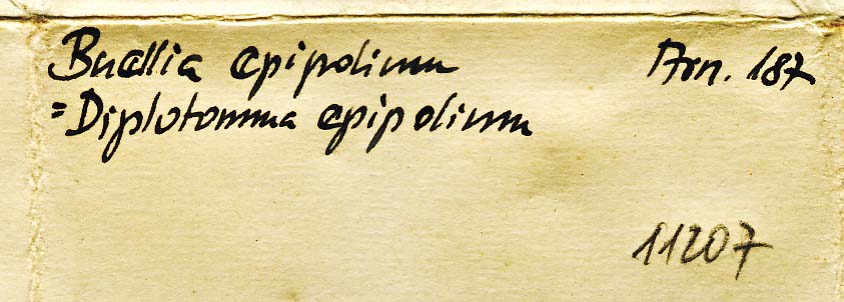 Buellia epipolium Arn. 187
=Diplotomma epipolium
11207